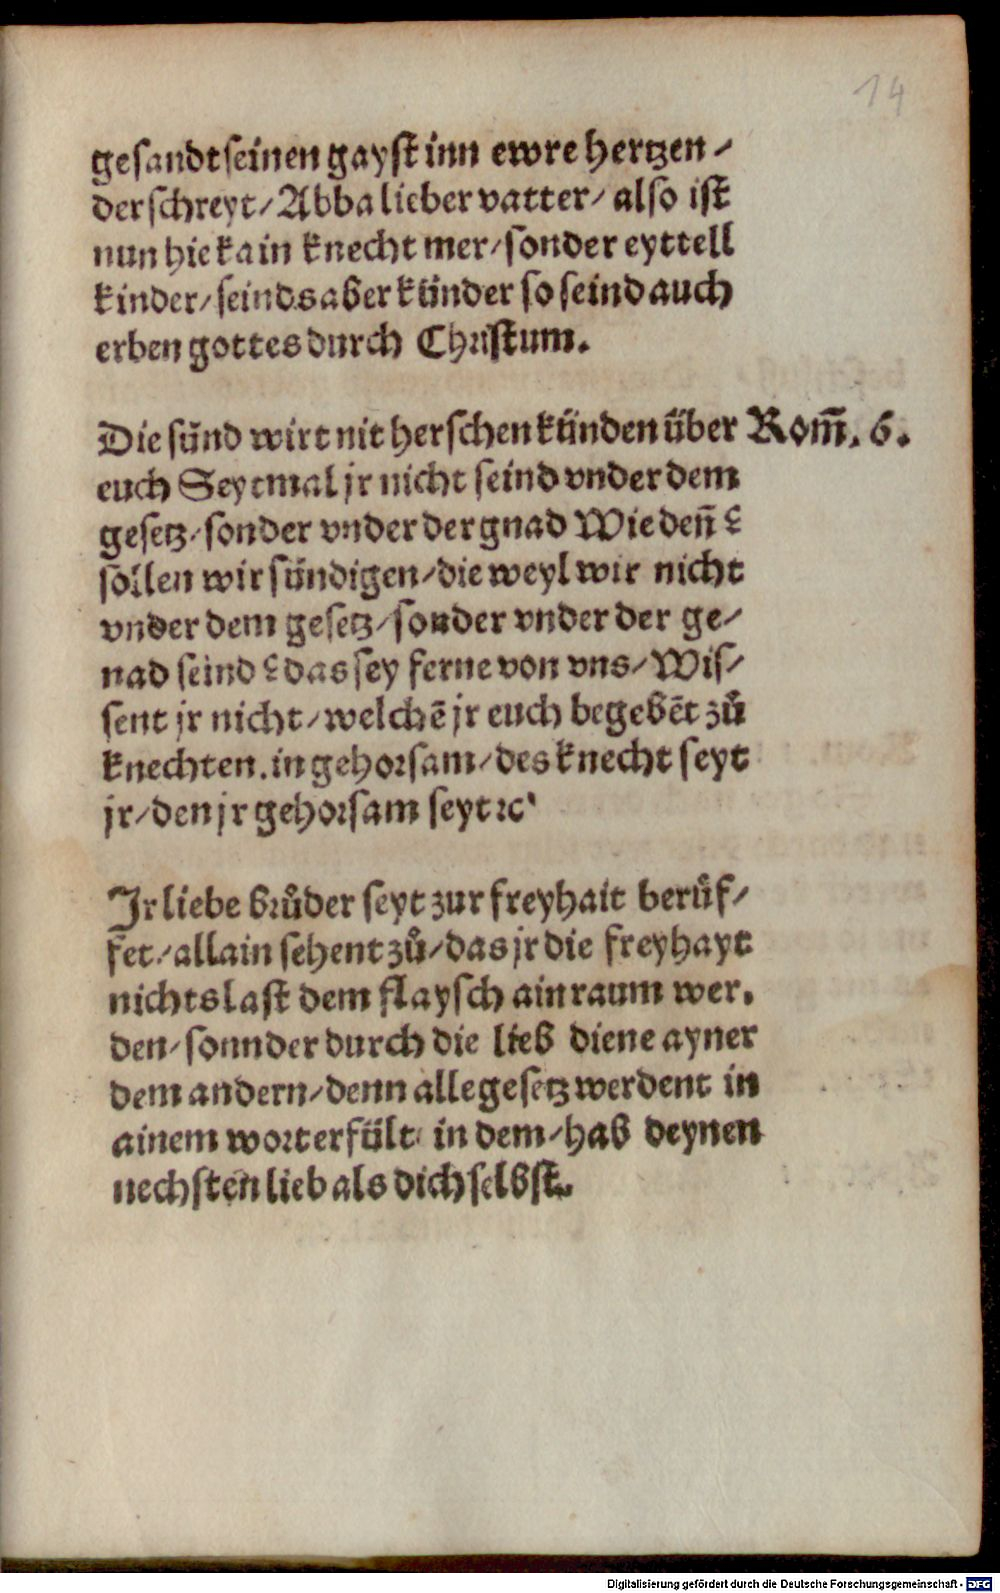 14
gesandt seinen gayst inn ewre hertzen /
der schreyt / Abba lieber vatter / also ist
nun hie kain knecht mer / sonder eyttell
kinder / seinds aber künder so seind auch
erben gottes durch Christum.
Die sünd wirt nit herschen künden über Rom̃. 6.
euch Seytmal jr nicht seind vnder dem
gesetz / sonder vnder der gnad Wie deñ ?
sollen wir sündigen / die weyl wir nicht
vnder dem gesetz / sonder vnder der ge /
nad seind ? das sey ferne von vns / Wis /
sent jr nicht / welchē jr euch begebēt zů
knechten . in gehorsam / des knecht seyt
jr / den jr gehorsam seyt ꝛc
Jr liebe brůder seyt zur freyhait berůf /
fet / allain sehent zů / das jr die freyhayt
nichts last dem flaysch ain raum wer .
den / sonnder durch die lieb diene ayner
dem andern / denn alle gesetz werdent in
ainem wort erfült in dem / hab deynen
nechsten lieb als dich selbst.
Digitalisierung gefördert durch die Deutsche Forschungsgemeinschaft - DFG